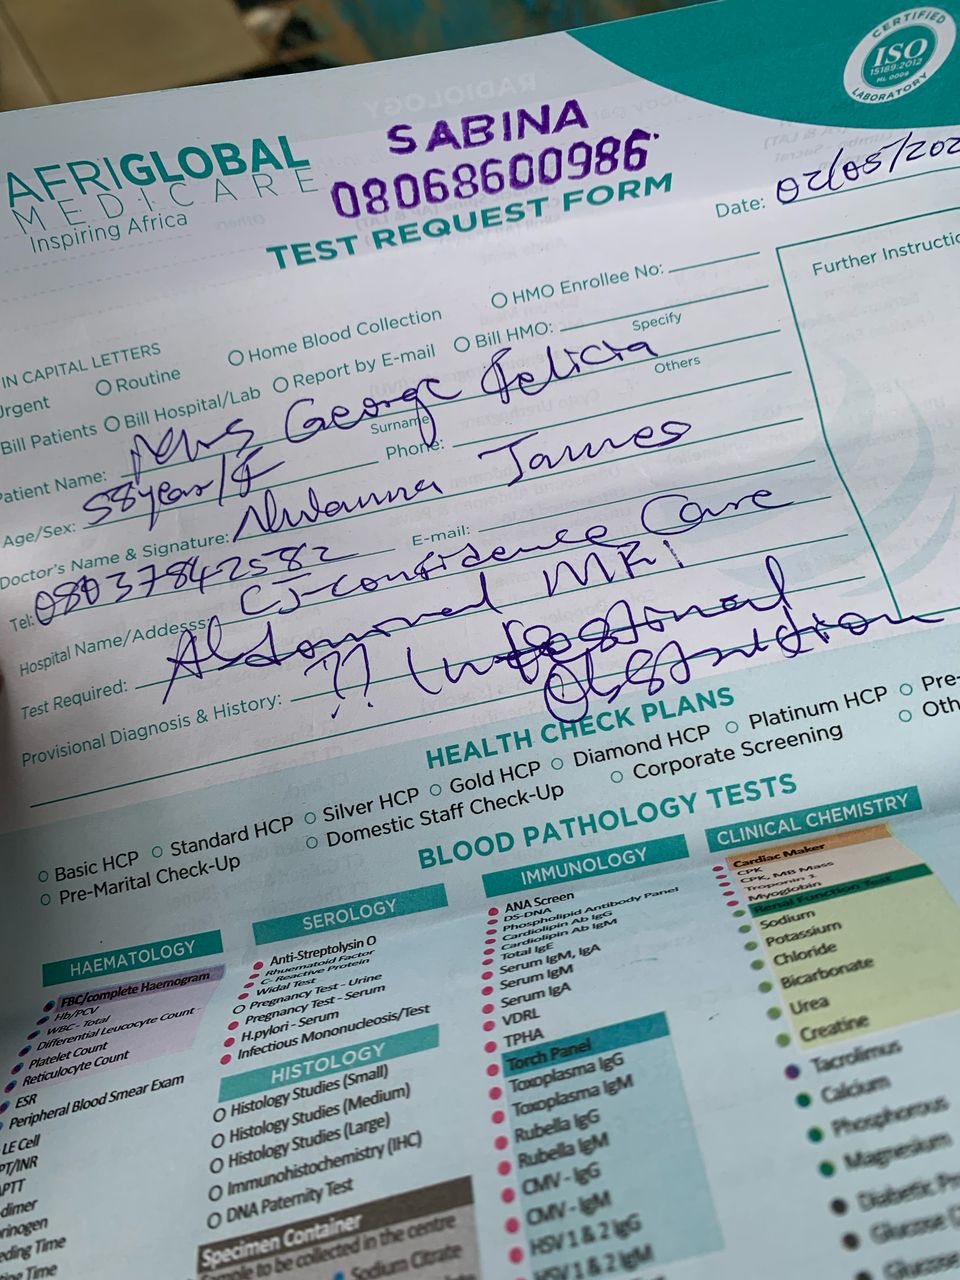 CERTIFIED
ISO
15189:2012
ML 0008
LABORATORY
AFRIGLOBAL
MEDICARE
Inspiring Africa
SABINA
08068600986
TEST REQUEST FORM
Date: 02/05/202
IN CAPITAL LETTERS
Urgent
Routine
Home Blood Collection
HMO Enrollee No:
Further Instructio
Bill Patients
Bill Hospital/Lab
Report by E-mail
Bill HMO:
Specify
Others
Patient Name: Mrs George Felicia
Surname
Age/Sex: 58year/F
Phone:
Doctor's Name & Signature: Nwanna James
Tel: 08037842582
E-mail:
Hospital Name/Addesss: CJ-confidence Care
Test Required: Abdominal MRI
Provisional Diagnosis & History: ?? Intestinal
Obstruction
HEALTH CHECK PLANS
Basic HCP
Standard HCP
Silver HCP
Gold HCP
Diamond HCP
Platinum HCP
Pre-
Pre-Marital Check-Up
Domestic Staff Check-Up
Corporate Screening
Oth
BLOOD PATHOLOGY TESTS
HAEMATOLOGY
FBC/complete Haemogram
Hb/PCV
WBC - Total
Differential Leucocyte Count -
Platelet Count
Reticulocyte Count
ESR
Peripheral Blood Smear Exam
LE Cell
PT/INR
APTT
-dimer
rinogen
eding Time
ing Time
SEROLOGY
Anti-Streptolysin O
Rhuematoid Factor
C- Reactive Protein
Widal Test
Pregnancy Test - Urine
Pregnancy Test - Serum
H.pylori - Serum
Infectious Mononucleosis/Test
HISTOLOGY
Histology Studies (Small)
Histology Studies (Medium)
Histology Studies (Large)
Immunohistochemistry (IHC)
DNA Paternity Test
Specimen Container
Sample to be collected in the centre
Sodium Citrate
IMMUNOLOGY
ANA Screen
DS-DNA
Phospholipid Antibody Panel
Cardiolipin Ab IgG
Cardiolipin Ab IgM
Total IgE
Serum IgM, IgA
Serum IgM
Serum IgA
VDRL
TPHA
Torch Panel
Toxoplasma IgG
Toxoplasma IgM
Rubella IgG
Rubella IgM
CMV - IgG
CMV - IgM
HSV 1 & 2 IgG
HSV 1 & 2 IgM
CLINICAL CHEMISTRY
Cardiac Maker
CPK
CPK, MB Mass
Troponin 1
Myoglobin
Renal Function Test
Sodium
Potassium
Chloride
Bicarbonate
Urea
Creatine
Tacrolimus
Calcium
Phosphorous
Magnesium
Diabetic Pr
Glucose
Glucose